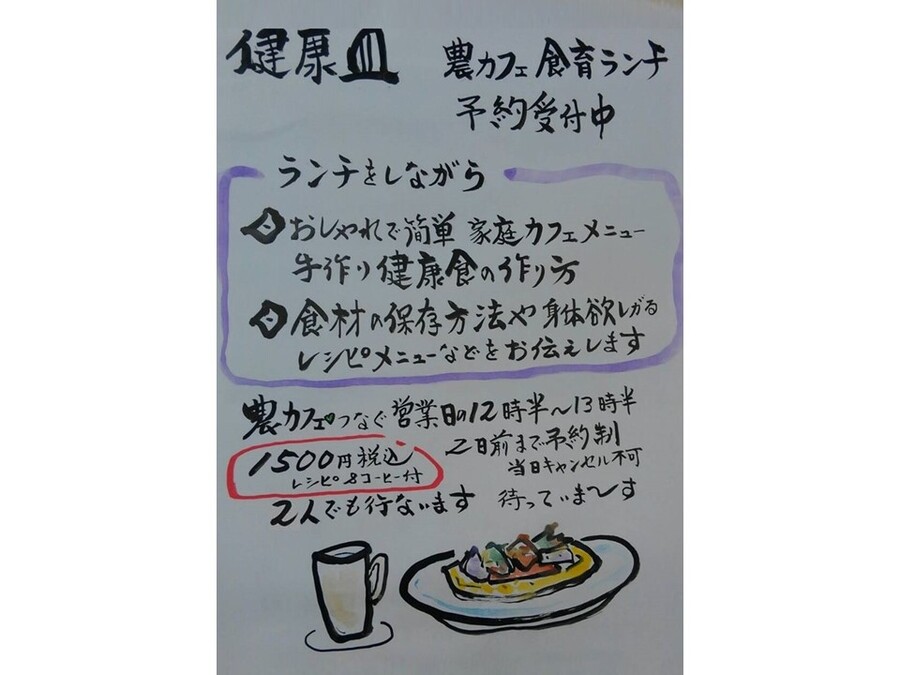 健康皿
農カフェ 食育ランチ
予約受付中
ランチをしながら
おしゃれで簡単 家庭カフェメニュー
手作り健康食の作り方
食材の保存方法や身体欲しがる
レシピメニューなどをお伝えします
農カフェつなぐ営業日の12時半〜13時半
1500円税込
レシピ&コーヒー付
2日前まで予約制
当日キャンセル不可
2人でも行ないます 待っていま〜す